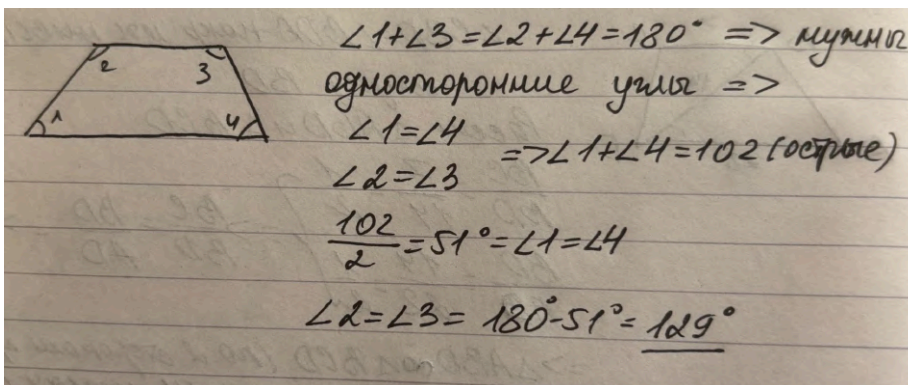 ∠1+∠3=∠2+∠4=180° => нужны
односторонние углы =>
∠1=∠4
=>∠1+∠4=102 (острые)
∠2=∠3
102/2=51°=∠1=∠4
∠2=∠3= 180°-51°= 129°
2
3
1
4